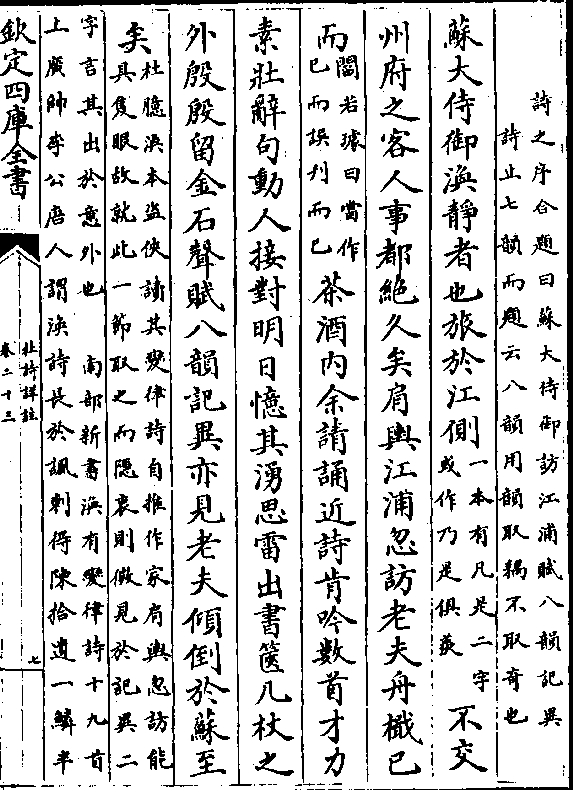 詩之序合題曰蘇大侍御訪江浦賦八韻記異
詩止七韻而題云八韻用韻取耦不取奇也
蘇大侍御渙靜者也旅於江側一本有凡是二字或作乃是俱羨不交
州府之客人事都絶久矣肩輿江浦忽訪老夫舟檝已
而閻若璩曰當作已而誤刋而已茶酒内余請誦近詩肯吟數首才力
素壯辭句動人接對明日憶其湧思雷出書篋几杖之
外殷殷留金石聲賦八韻記異亦見老夫傾倒於蘇至
矣杜臆渙本盗俠讀其變律詩自推作家肩輿忽訪能具隻眼故就此一節取之而隱衷則微見於記異二
字言其出於意外也　南部新書渙有變律詩十九首
上廣帥李公唐人謂渙詩長於諷刺得陳拾遺一鱗半
欽定四庫全書
杜詩詳註
卷二十三
七